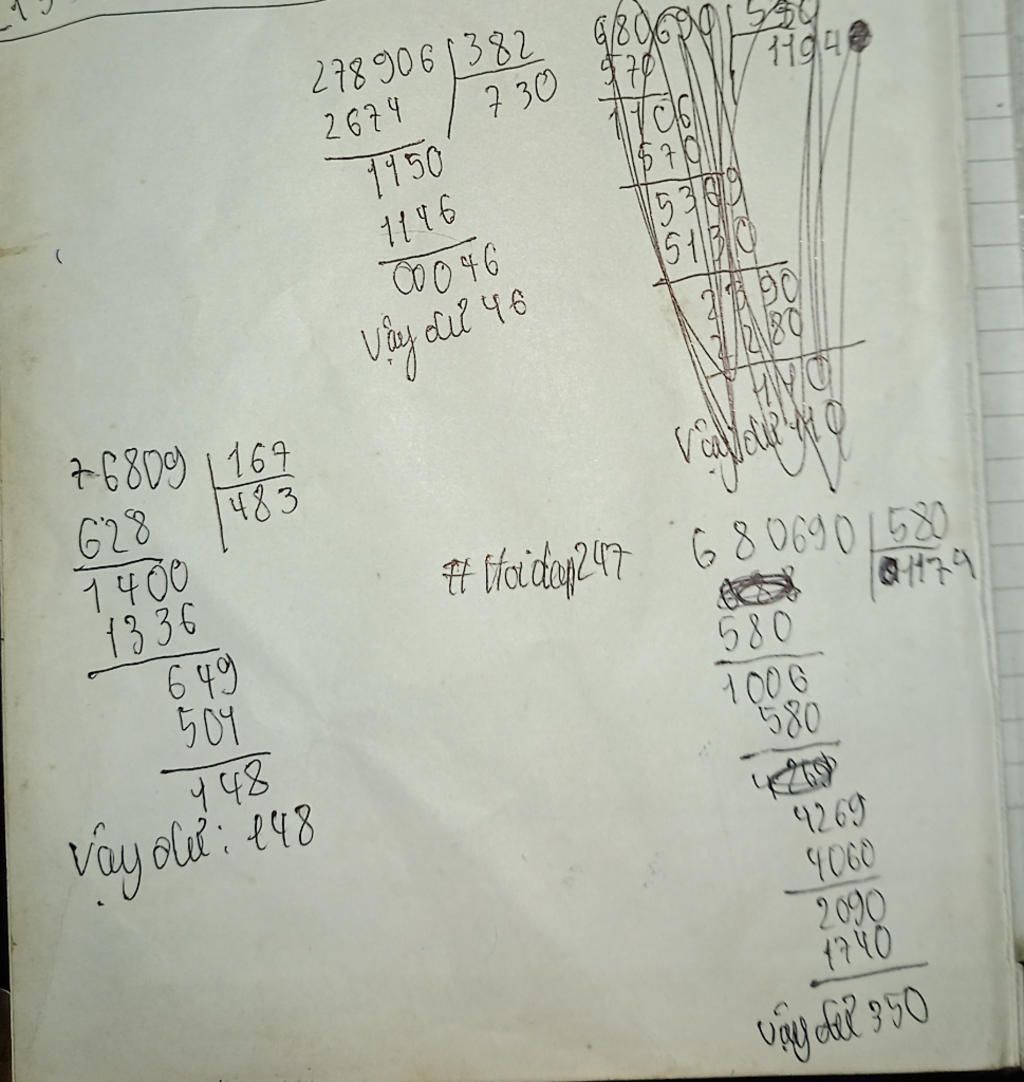 278906 | 382
2674 | 730
1150
1146
00046
Vậy dư 46
680690
570
1106
570
5369
5130
2390
2280
110
Vậy dư 110
76809 | 167
628 | 483
1400
1336
649
501
148
Vậy dư: 148
#Hoidap247
680690 | 580
580
1006
580
4269
4060
2090
1740
Vậy dư 350